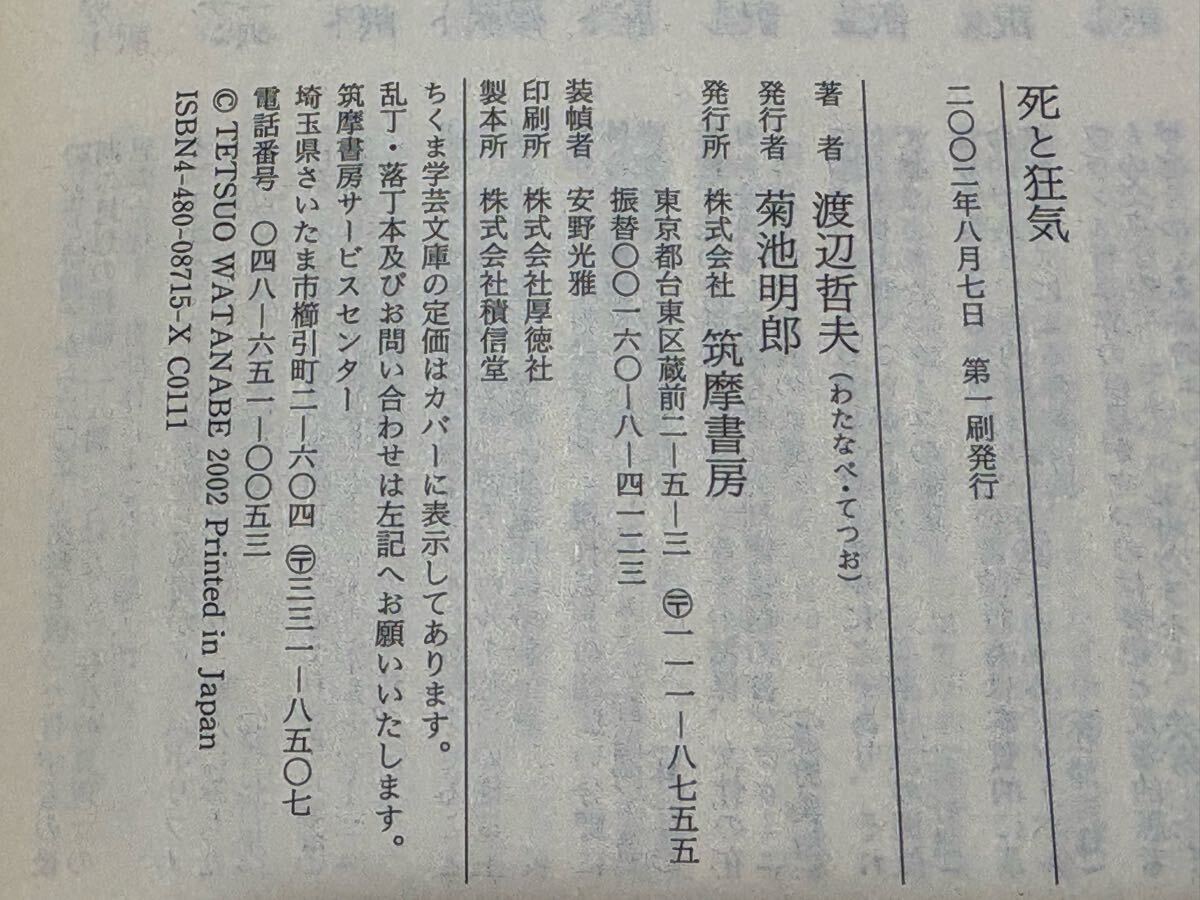 死と狂気
二〇〇二年八月七日　第一刷発行
著　者　渡辺哲夫（わたなべ・てつお）
発行者　菊池明郎
発行所　株式会社　筑摩書房
東京都台東区蔵前二―五―三　〒一一一―八七五五
振替〇〇一六〇―八―四一二三
装幀者　安野光雅
印刷所　株式会社厚徳社
製本所　株式会社積信堂
ちくま学芸文庫の定価はカバーに表示してあります。
乱丁・落丁本及びお問い合わせは左記へお願いいたします。
筑摩書房サービスセンター
埼玉県さいたま市櫛引町二―六〇四　〒三三一―八五〇七
電話番号　〇四八―六五一―〇〇五三
© TETSUO WATANABE 2002 Printed in Japan
ISBN4-480-08715-X C0111